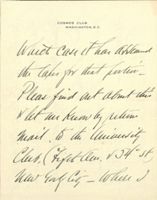 COSMOS CLUB
WASHINGTON, D.C.
which case it has
the for that portion—
Please find out about this
& let me know by return
mail, to the University
Club, Fifth Ave. & 54th St,
New York City— Where I